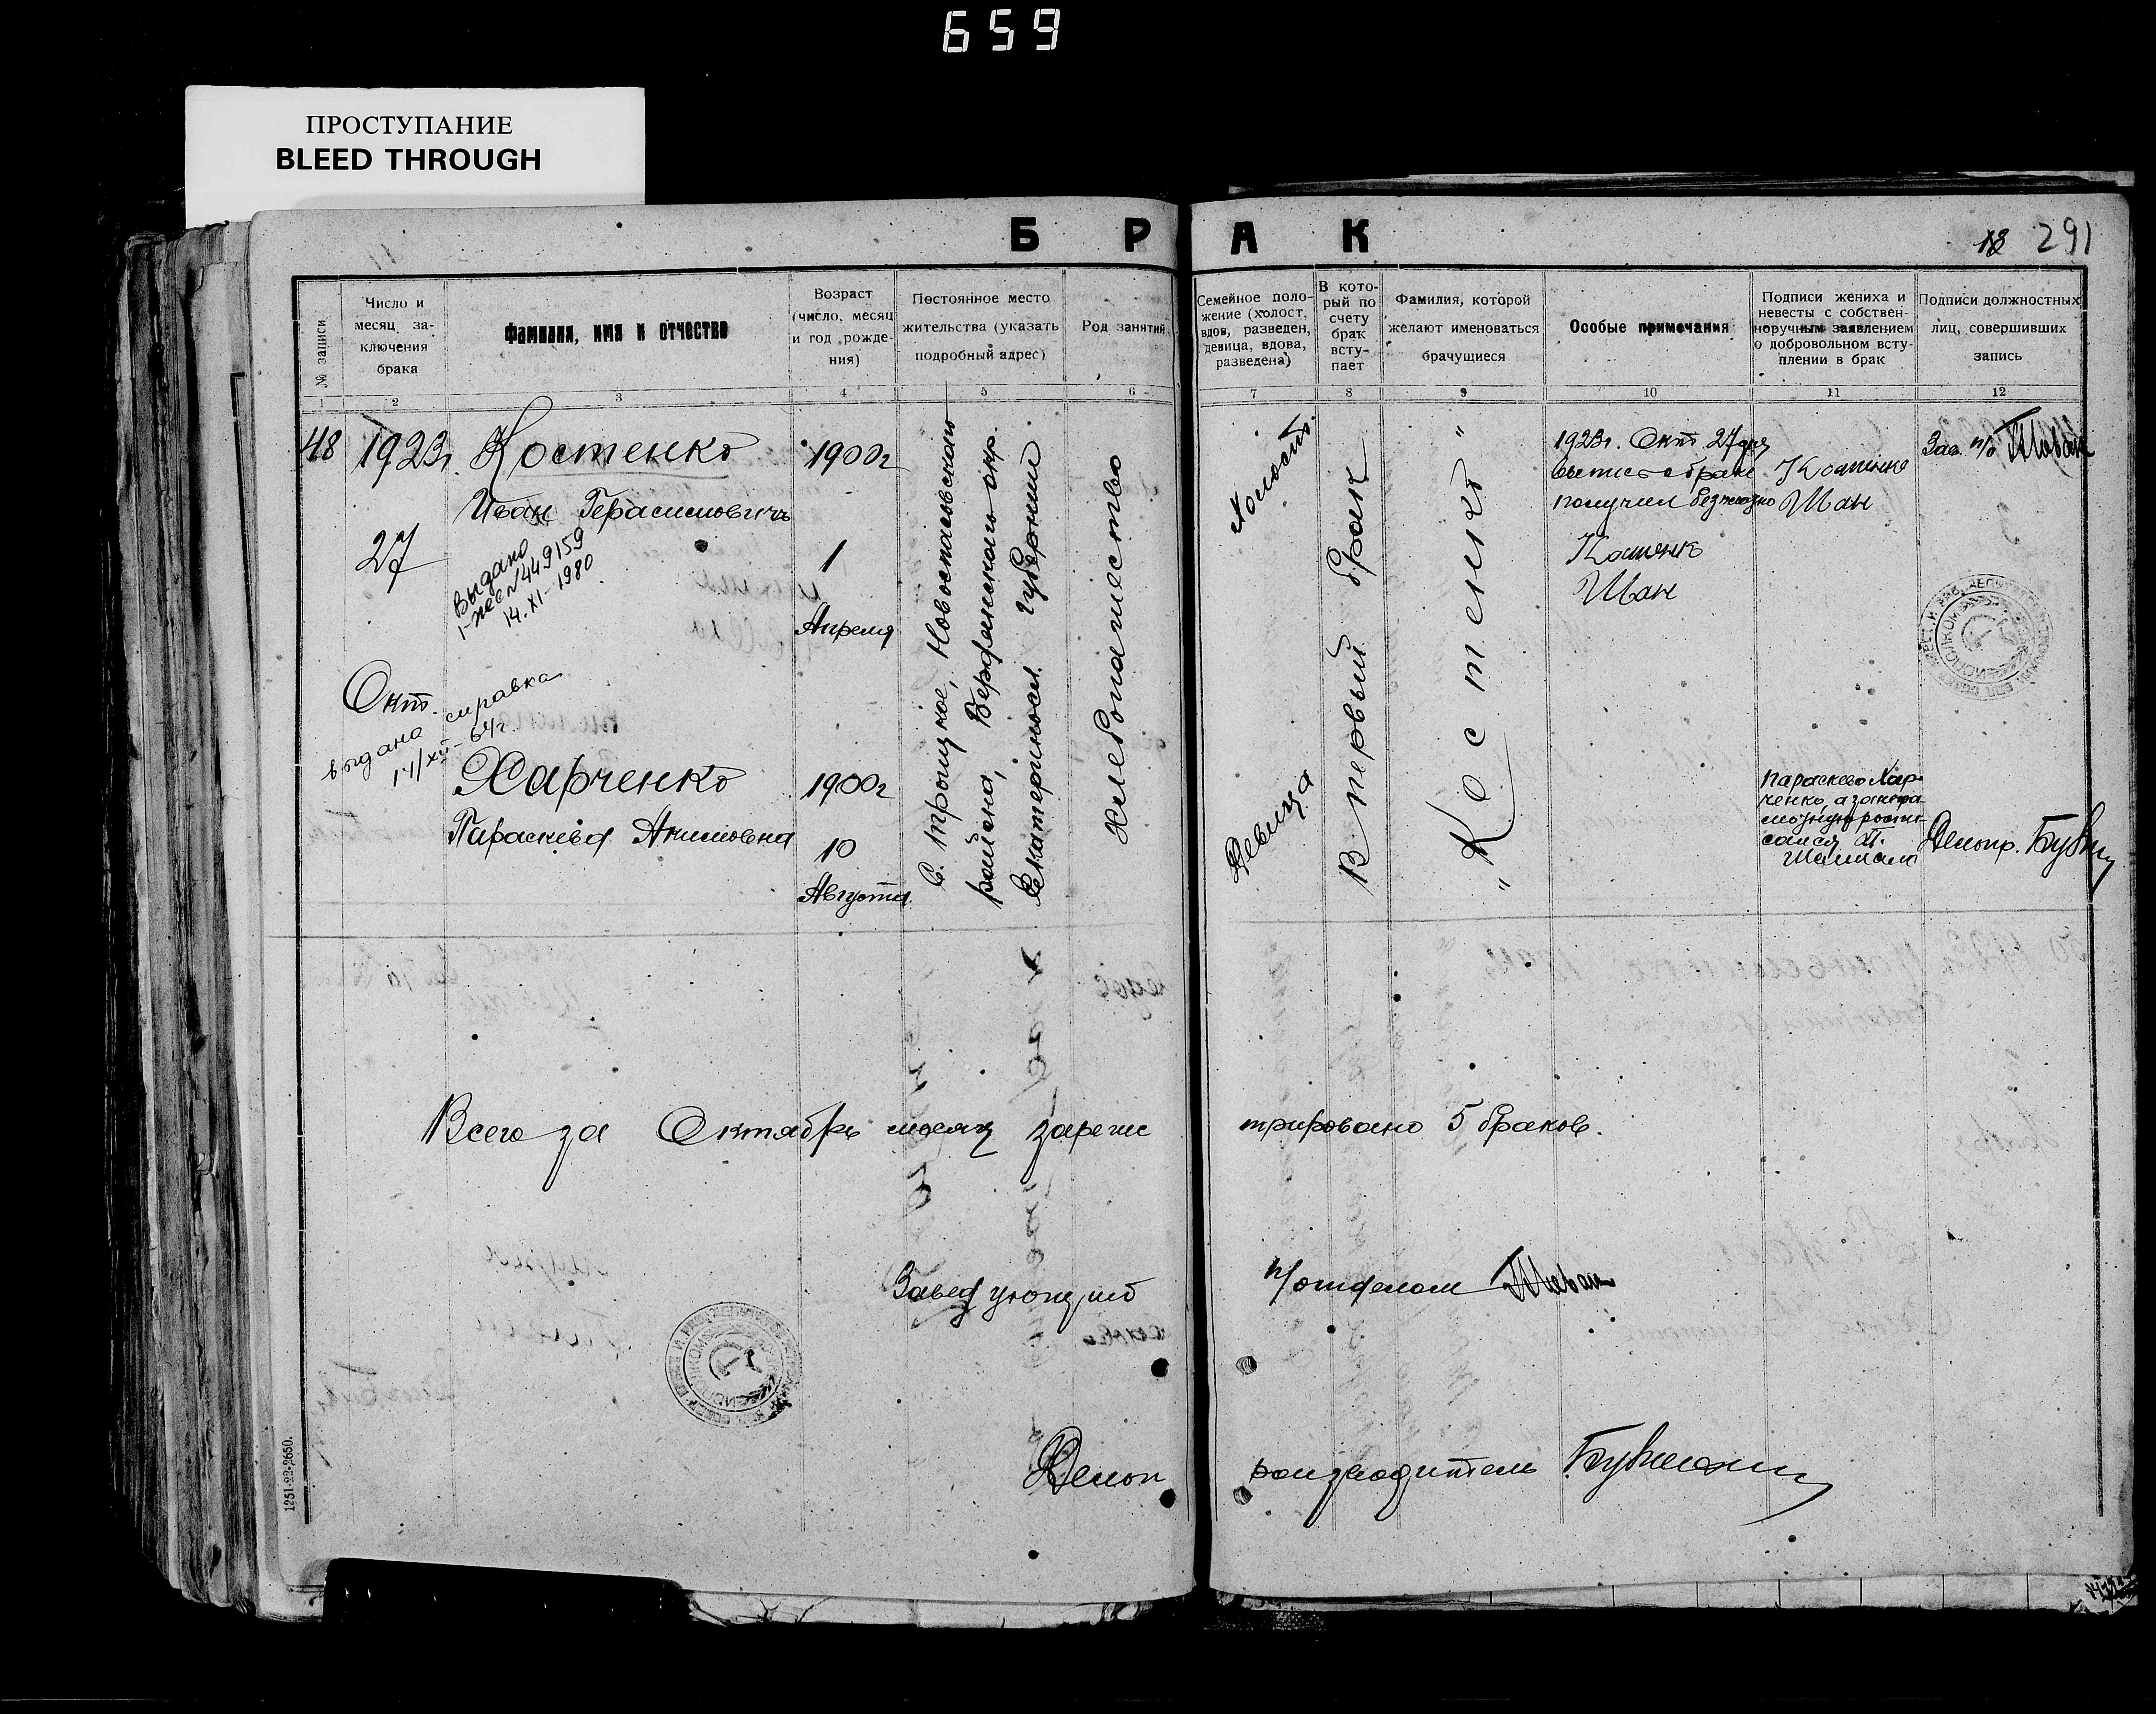 659
ПРОСТУПАНИЕ
BLEED THROUGH
Б Р А К
291
№ записи
Число и
месяц за-
ключения
брака
Фамилия, имя и отчество
Возраст
(число, месяц
и год рожде-
ния)
Постоянное место
жительства (указать
подробный адрес)
Род занятий
Семейное поло-
жение (холост,
вдов, разведен,
девица, вдова,
разведена)
В кото-
рый по
счету
брак
всту-
пает
Фамилия, которой
желают именоваться
брачущиеся
Особые примечания
Подписи жениха и
невесты с собствен-
норучным заявлением
о добровольном всту-
плении в брак
Подписи должностных
лиц, совершивших
запись
1 2 3 4 5 6 7 8 9 10 11 12
48
1923г.
27
Окт.
выдана справка
14/XII-64г.
Костенко
Иван Герасимович
Выдано
I-ЖБ №449159
14.XI-1980
Харченко
Параскева Акимовна
1900г
1
Апреля
1900г
10
Августа.
С. Троицкое, Новоспасовского
района, Бердянского окр.
Екатеринослав. губернии
Хлебопашество
Холост
Девица
В первый брак
"Костенко"
1923г. Окт. 27 дня
выпись о браке
получил
Костенко
Иван
Костенко
Иван
Параскева Хар-
ченко, а за негра-
мотную роспи-
сался
Зав. п/о
Делопр.
Всего за Октябрь месяц зарегис
трировано 5 браков.
Заведующий п/отделом
Делоп роизводитель
1251-22-2650.